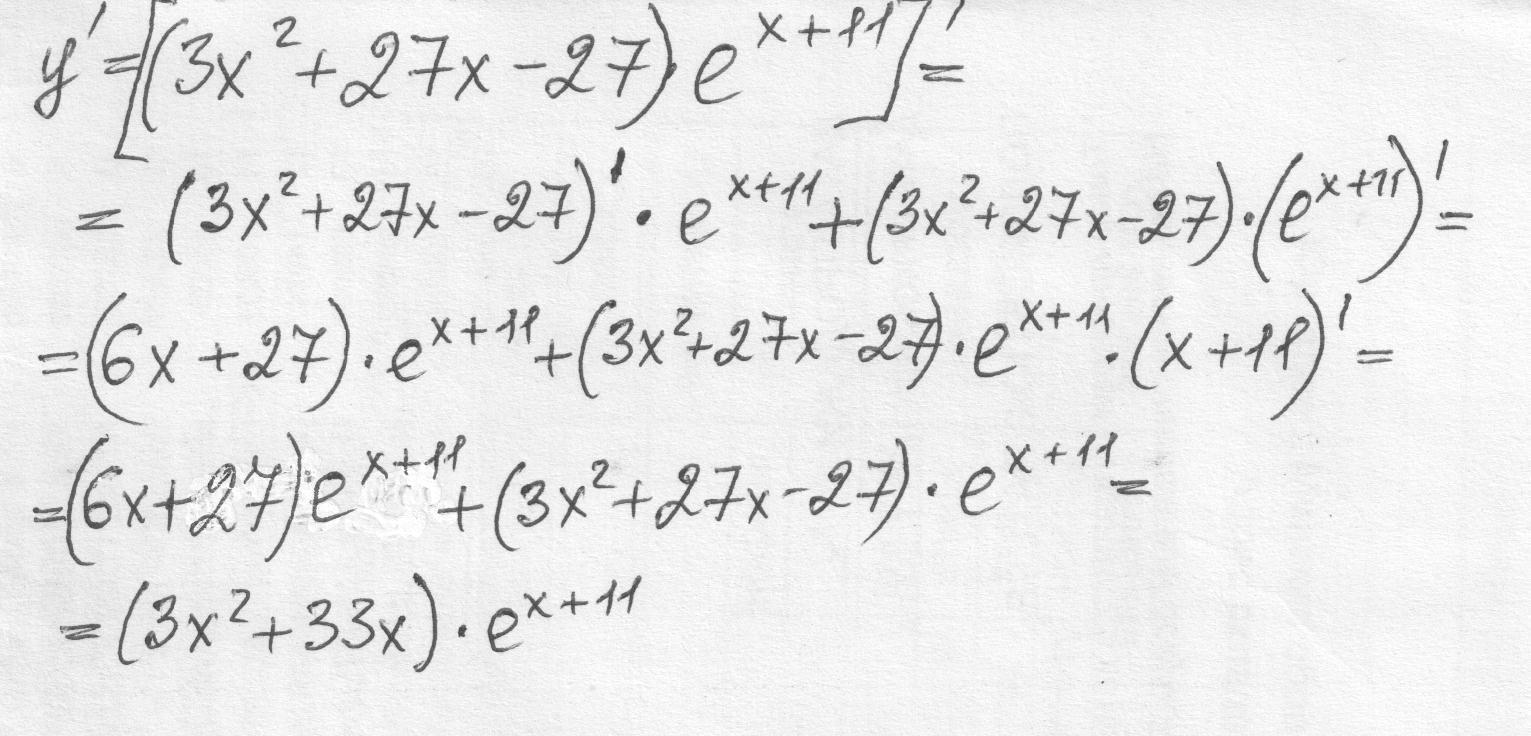 y' = [(3x² + 27x - 27) · e^(x+11)]' =
= (3x² + 27x - 27)' · e^(x+11) + (3x² + 27x - 27) · (e^(x+11))' =
= (6x + 27) · e^(x+11) + (3x² + 27x - 27) · e^(x+11) · (x + 11)' =
= (6x + 27) e^(x+11) + (3x² + 27x - 27) · e^(x+11) =
= (3x² + 33x) · e^(x+11)